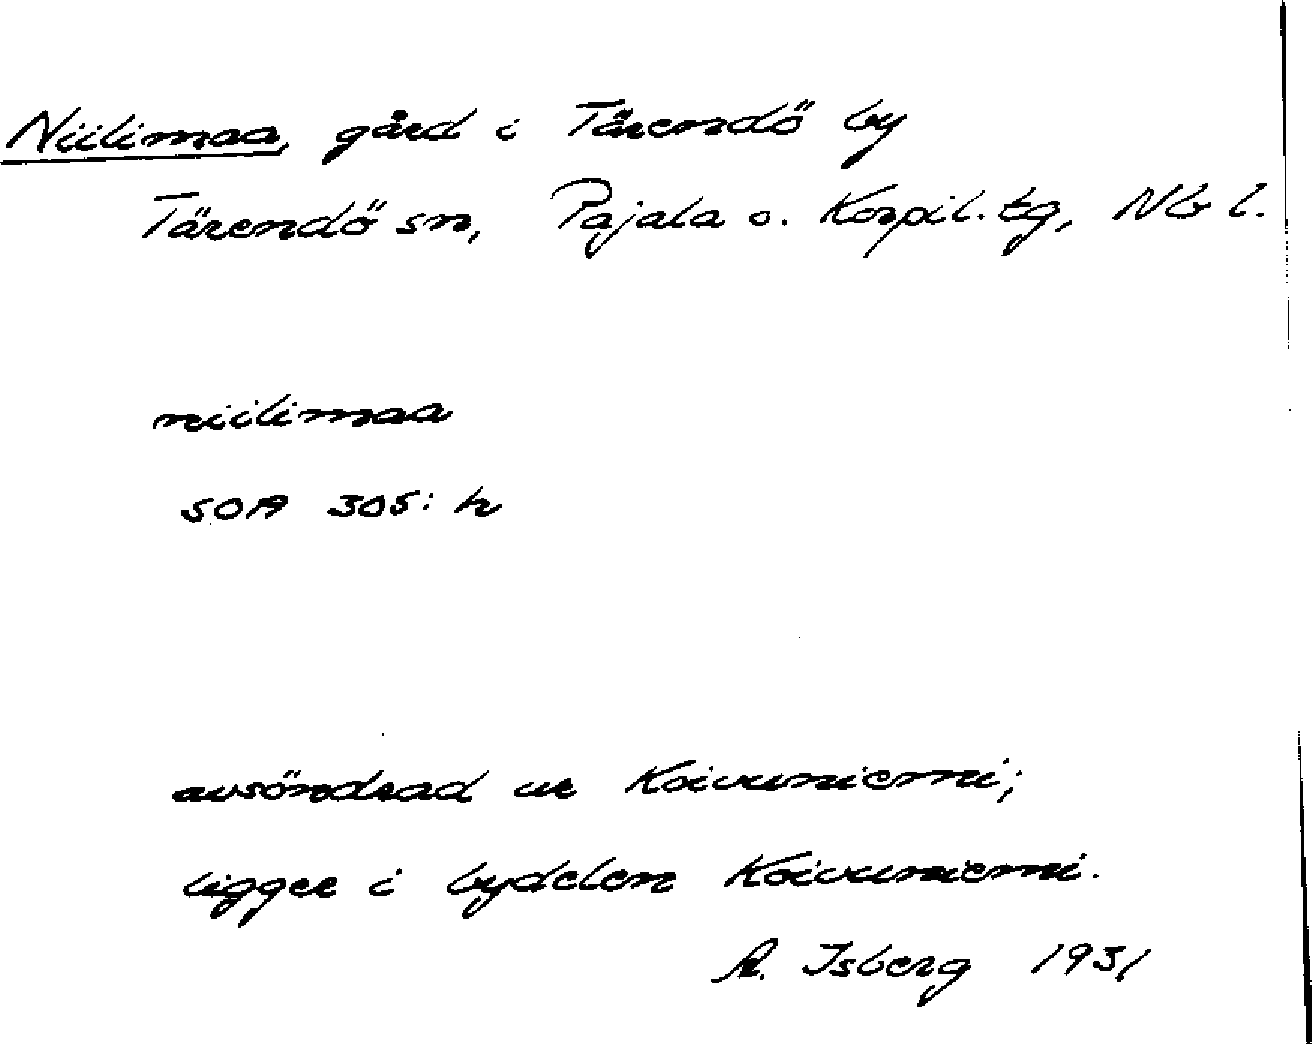 Niilimaa, gård i Tärendö by
Tärendö sn, Pajala o. Korpil. tg, Nb l.
niilimaa
SOA 305: h
avsöndrad ur Koivuniemi;
ligger i bydelen Koivuniemi.
A. Isberg 1931